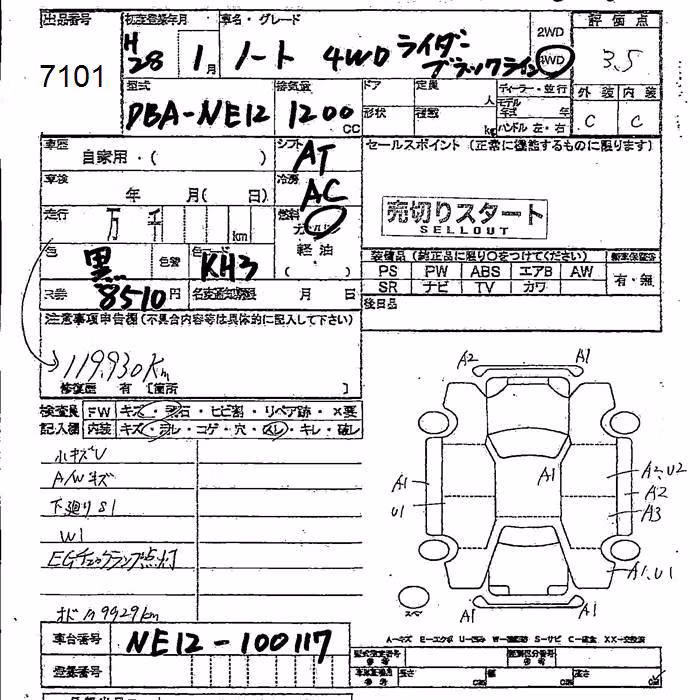 出品番号 初度登録年月 車名・グレード 2WD 評価点
7101 H28 1月 ノート 4WD ライダー ブラックライン 4WD 3.5
型式 排気量 ドア 定員 人 ディーラー・並行 外装 内装
DBA-NE12 1200cc 形状 kg モデル年式 年 ハンドル 左・右 C C
車歴 シフト セールスポイント (正常に機能するものに限ります)
自家用・( ) AT
車検 年 月( 日) 冷房 AC
売切りスタート
SELLOUT
走行 万 千 km 燃料
色 黒 色替 KH3 軽油 ( )
装備品 (純正品に限り○をつけてください)
PS PW ABS エアB AW 有・無
SR ナビ TV カワ
8510円 月 日 後日品
注意事項申告欄 (不具合内容等は具体的に記入して下さい)
119,930Km
修復歴 有 [箇所 ]
検査員 FW キズ・飛石・ヒビ割・リペア跡・×要
記入欄 内装 キズ・ヨレ・コゲ・穴・スレ・キレ・破レ
小キズU
A/Wキズ
下廻りS1
W1
EGチェックランプ点灯
A2 A1
A1
A1
U1
A2、U2
A2
A3
A1、U1
A1 A1
スペア
A-キズ E-エクボ U-凹み W-補修跡 S-サビ C-腐食 XX-交換済
車台番号 NE12-100117
登録番号
型式指定番号 類別区分番号
長さ cm 幅 cm 高さ cm